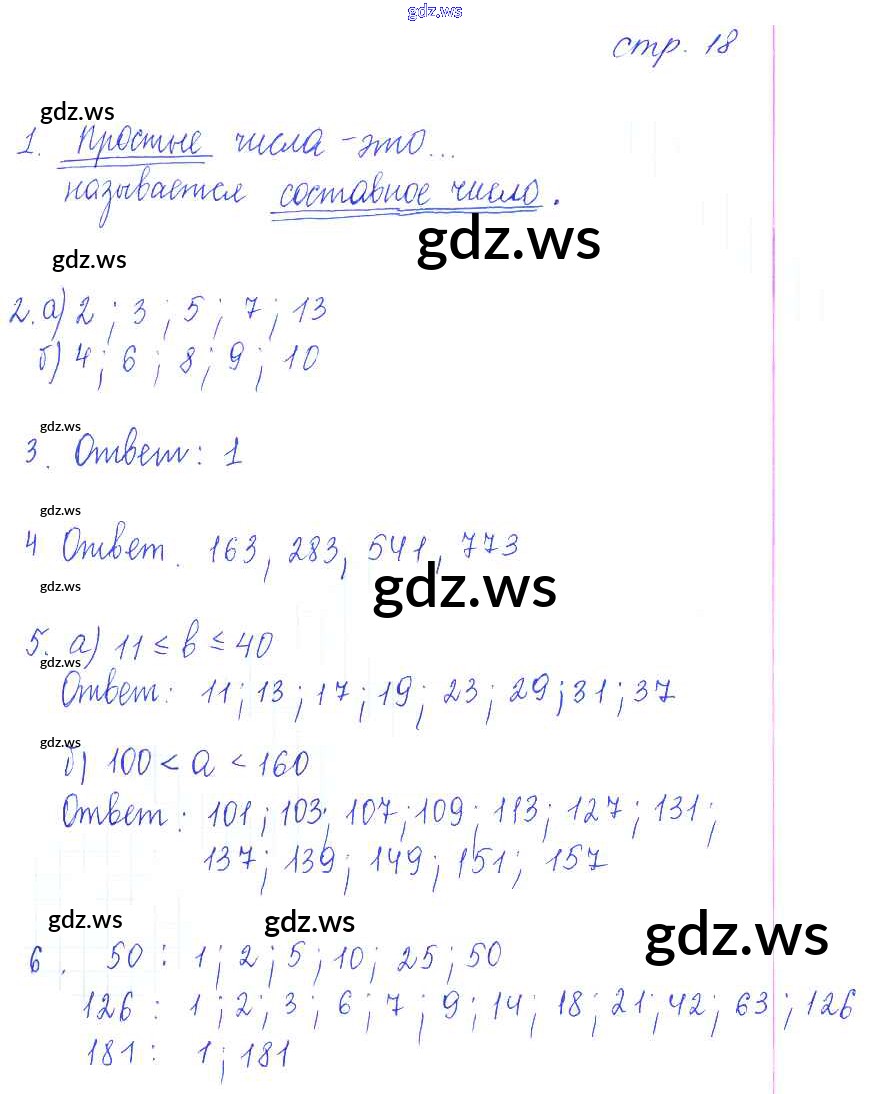 gdz.ws
стр. 18
gdz.ws
1. Простые числа - это...
называется составное число.
gdz.ws
gdz.ws
2. а) 2; 3; 5; 7; 13
б) 4; 6; 8; 9; 10
gdz.ws
3. Ответ: 1
gdz.ws
4 Ответ. 163, 283, 541, 773
gdz.ws
gdz.ws
5. а) 11 ≤ b ≤ 40
gdz.ws
Ответ: 11; 13; 17; 19; 23; 29; 31; 37
gdz.ws
б) 100 < a < 160
Ответ: 101; 103; 107; 109; 113; 127; 131;
137; 139; 149; 151; 157
gdz.ws
gdz.ws
gdz.ws
6. 50 : 1; 2; 5; 10; 25; 50
126 : 1; 2; 3; 6; 7; 9; 14; 18; 21; 42; 63; 126
181 : 1; 181